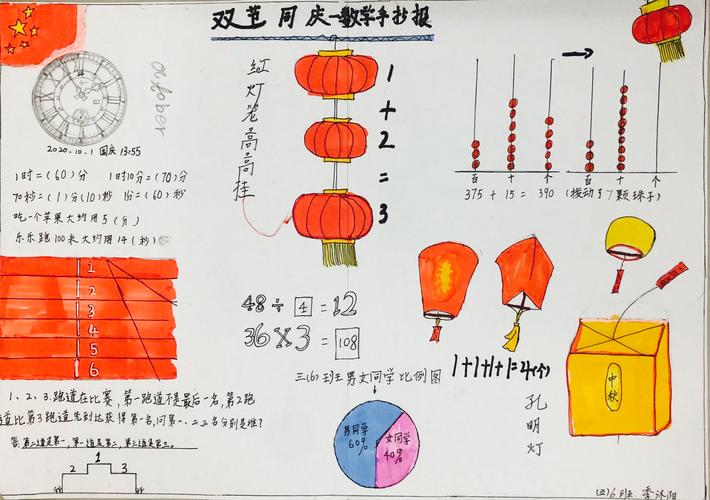 双节同庆一数学手抄报
october
2020.10.1 国庆 13:55
1时=(60)分 1时10分=(70)分
70秒=(1)分(10)秒 1分=(60)秒
吃一个苹果大约用5(分)
乐乐跑100米大约用14(秒)
1
2
3
4
5
6
1、2、3.跑道在比赛,第一跑道不是最后一名,第2跑
道比第3跑道先到达获得第一名,问第一、二、三名分别是谁?
答:第二道是第一,第一道是第二,第三道是第三。
2 1 3
红灯笼高高挂
1+2=3
48÷4=12
36×3=108
三(6)班男女同学比例图
男同学
60%
女同学
40%
百 十 个 百 十 个
375+15=390 (拨动了7颗珠子)
1+1+1+1=4(个)
孔明灯
中秋
6班 李沐阳